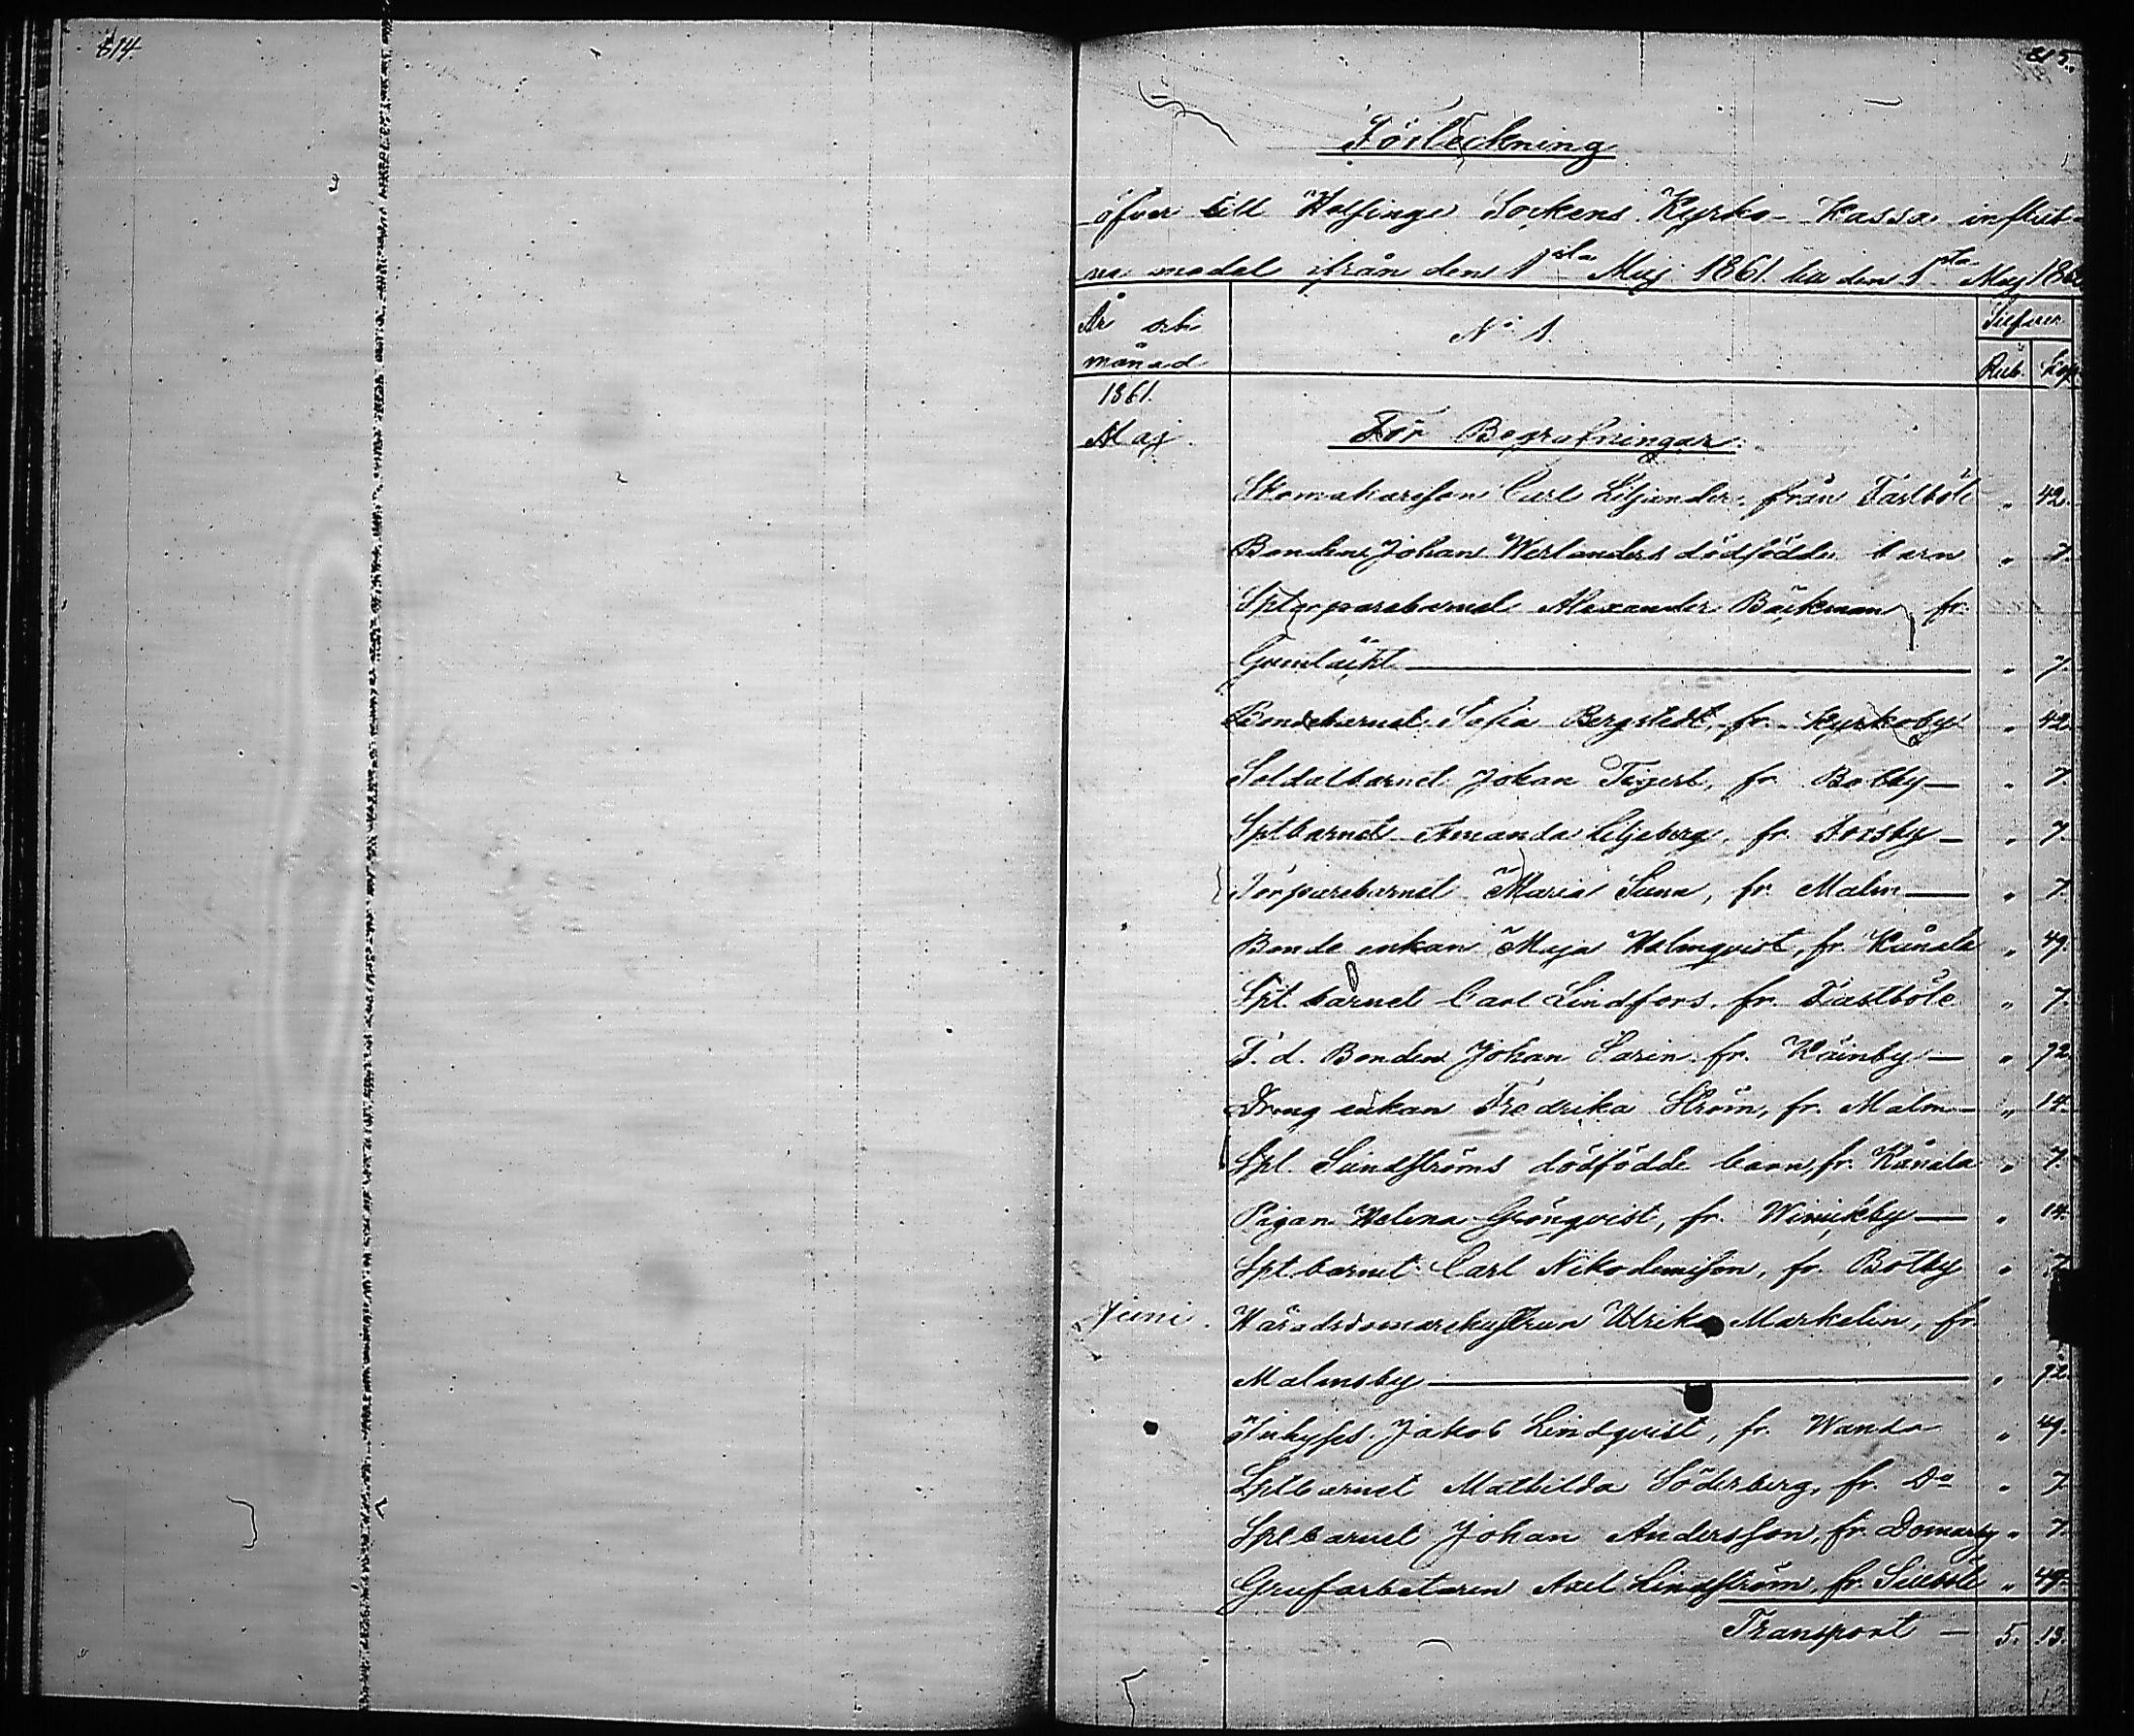 814.
815.
Förteckning
öfver till Helsinge Sockens Kyrko-Kassa influt-
na medel ifrån den 1sta Maj 1861 till den 1sta Maj
År och
månad
N:o 1.
Silfver
Rub. Kop.
1861.
Maj.
För Begrafningar.
Skomakaresson Carl Liljander, från Fastböle " 42.
Bonden Johan Werlanders dödfödde barn " 7.
Sptorparebarnet Alexander Bäckman, fr.
" 7.
Bondebarnet Sofia Bergstedt, fr. Kyrkoby " 42.
Soldatbarnet Johan Tigert, fr. Botby — " 7.
Sptbarnet Amanda Liljeberg, fr. — " 7.
Torparebarnet Maria Sund, fr. Malm — " 7.
Bonde enkan Maja Holmqvist, fr. Kånala " 49.
Spt. barnet Carl Lindfors, fr. Fastböle " 7.
F. d. Bonden Johan Sarin fr. — " 72.
Dräng enkan Fredrika Ström, fr. Malm — " 14.
Spt. Sundströms dödfödde barn, fr. Kånala " 7.
Pigan Helena Grönqvist, fr. Winickby — " 14.
Spt. barnet Carl Nikodemisson, fr. Botby " 7.
Juni. Häradsdomarehustrun Ulrika Markelin, fr.
Malmsby — " 72.
Inhyses. Jakob Lindqvist, fr. Wanda " 49.
Sptbarnet Mathilda Söderberg, fr. Do " 7.
Sptbarnet Johan Andersson, fr. Domarby " 7.
Grufarbetaren Axel Lindström, fr. " 49.
Transport — 5. 13.